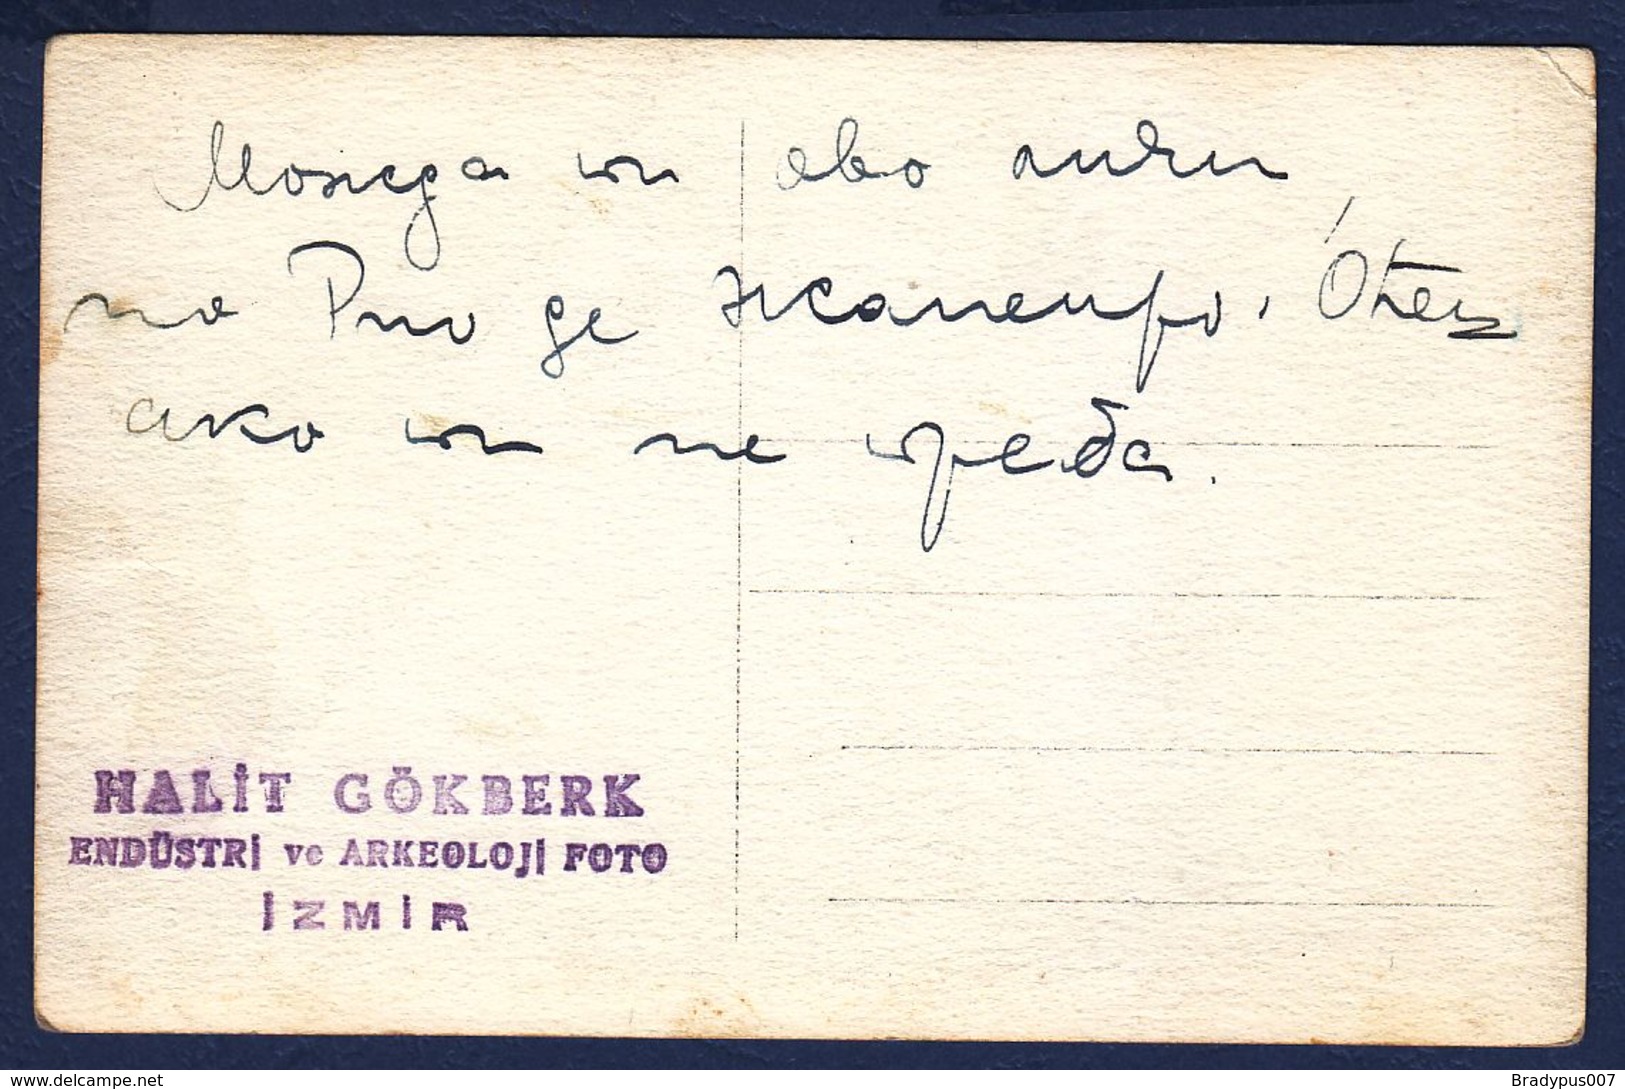 Можеда ти ово личи
на Рио де Жанеиро. Отец
ако ти не треба.
HALİT GÖKBERK
ENDÜSTRİ ve ARKEOLOJİ FOTO
İZMİR
Bradypus007